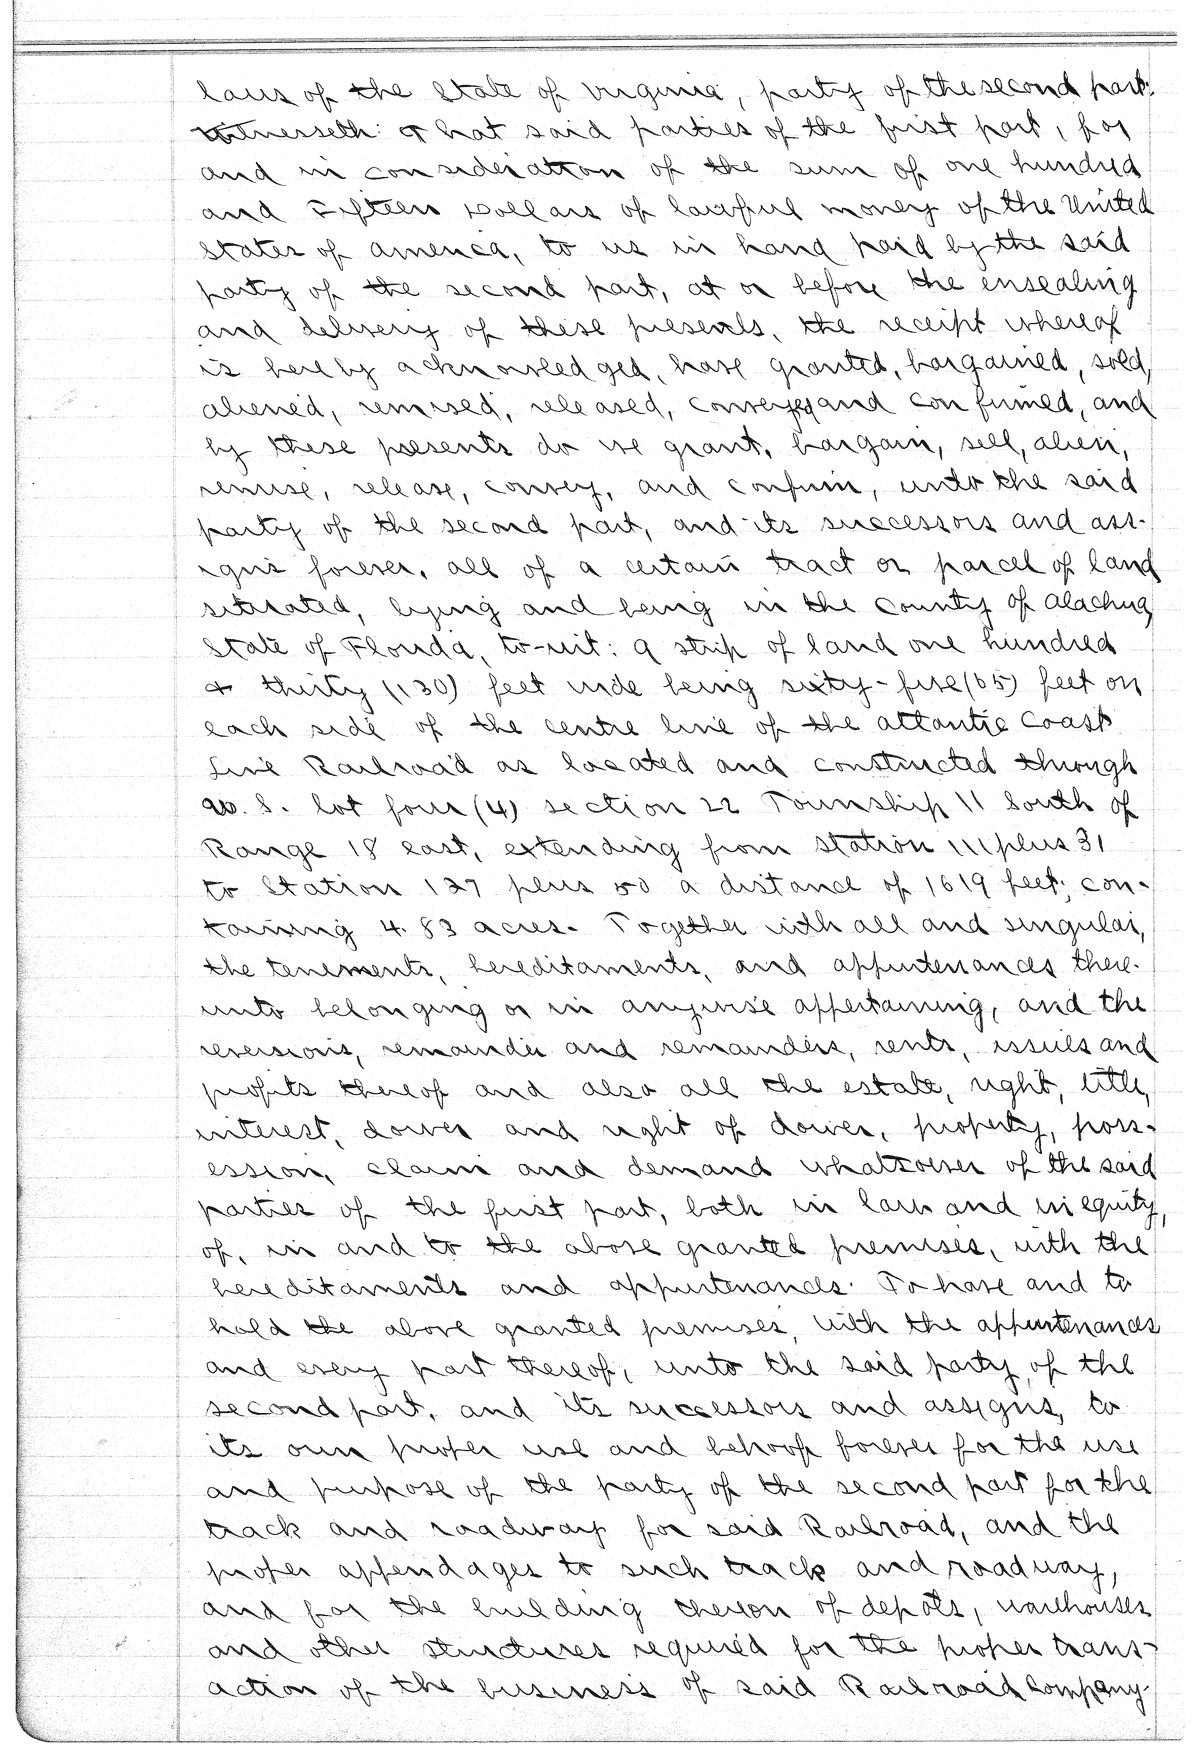 laws of the State of Virginia, party of the second part:
Witnesseth: That said parties of the first part, for
and in consideration of the sum of one hundred
and Fifteen Dollars of lawful money of the United
States of America, to us in hand paid by the said
party of the second part, at or before the ensealing
and delivery of these presents, the receipt whereof
is hereby acknowledged, have granted, bargained, sold,
aliened, remised, released, conveyed and confirmed, and
by these presents do we grant, bargain, sell, alien,
remise, release, convey, and confirm, unto the said
party of the second part, and its successors and ass-
igns forever, all of a certain tract or parcel of land
situated, lying and being in the County of Alachua,
State of Florida, to-wit: A strip of land one hundred
& thirty (130) feet wide being sixty-five (65) feet on
each side of the centre line of the Atlantic Coast
Line Railroad as located and constructed through
U.S. lot four (4) section 22 Township 11 South of
Range 18 east, extending from station 111 plus 31
to Station 127 plus 50 a distance of 1619 feet; con-
taining 4.83 acres. Together with all and singular,
the tenements, hereditaments, and appurtenances there-
unto belonging or in anywise appertaining, and the
reversions, remainder and remainders, rents, issues and
profits thereof and also all the estate, right, title,
interest, dower and right of dower, property, poss-
ession, claim and demand whatsoever of the said
parties of the first part, both in law and in equity,
of, in and to the above granted premises, with the
hereditaments and appurtenances. To have and to
hold the above granted premises, with the appurtenances
and every part thereof, unto the said party, of the
second part, and its successors and assigns, to
its own proper use and behoof forever for the use
and purpose of the party of the second part for the
track and roadway for said Railroad, and the
proper appendages to such track and roadway,
and for the building thereon of depots, warehouses
and other structures required for the proper trans-
action of the business of said Railroad Company.